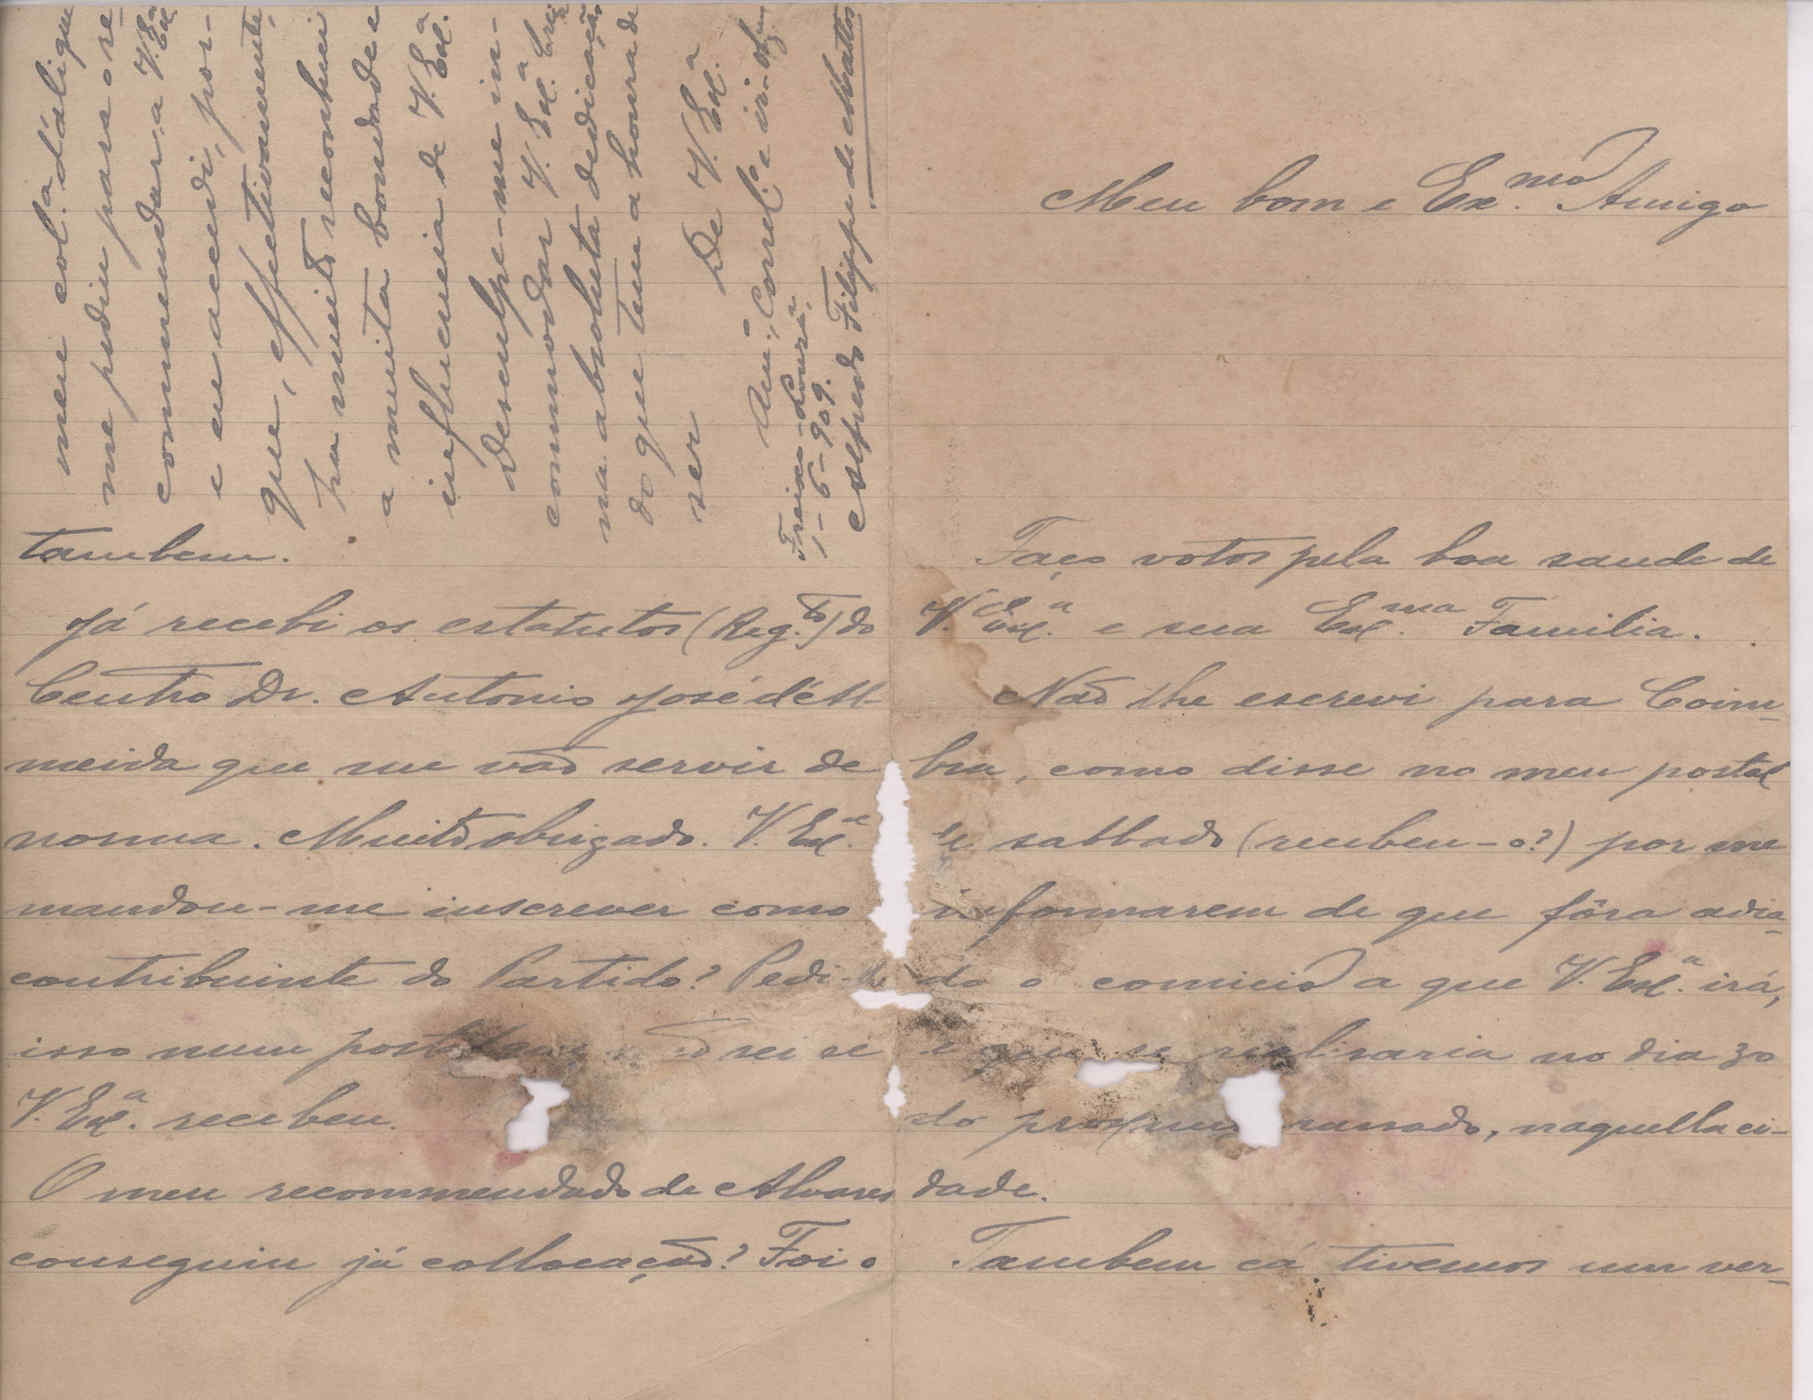 Meu bom e Ex.mo Amigo
Faço votos pela boa saude de
V. Ex.a e sua Ex.ma Familia.
Não lhe escrevi para Coim-
bra, como disse no meu postal
de sabbado (recebeu-o?) por me
informarem de que fôra adia-
do o comicio a que V. Ex.a irá,
e que se realisaria no dia 30
do proximo passado, naquella ci-
dade.
Tambem cá tivemos um ver-
tambem.
Já recebi os estatutos (Reg.to) do
Centro Dr. Antonio José d'Al-
meida que me vão servir de
norma. Muito obrigado. V. Ex.a
mandou-me inscrever como
contribuinte do Partido? Pedi-lhe
isso num postal não sei se
V. Ex.a recebeu.
O meu recommendado de Alvares
conseguiu já collocação? Foi o
meu col.a d'ali que
me pediu para o re-
commendar a V. Ex.a
e eu accedi, por-
que, effectivamente,
ha muito reconheci
a muita bondade e
influencia de V. Ex.a
Desculpe-me in-
commodar V. Ex.a. Creia
na absoluta dedicação
do que tem a honra de
ser
De V. Ex.a
Am.o, Correl.o e
Freixo-Louzã,
1-6-909.
Alfredo Filippe de Mattos